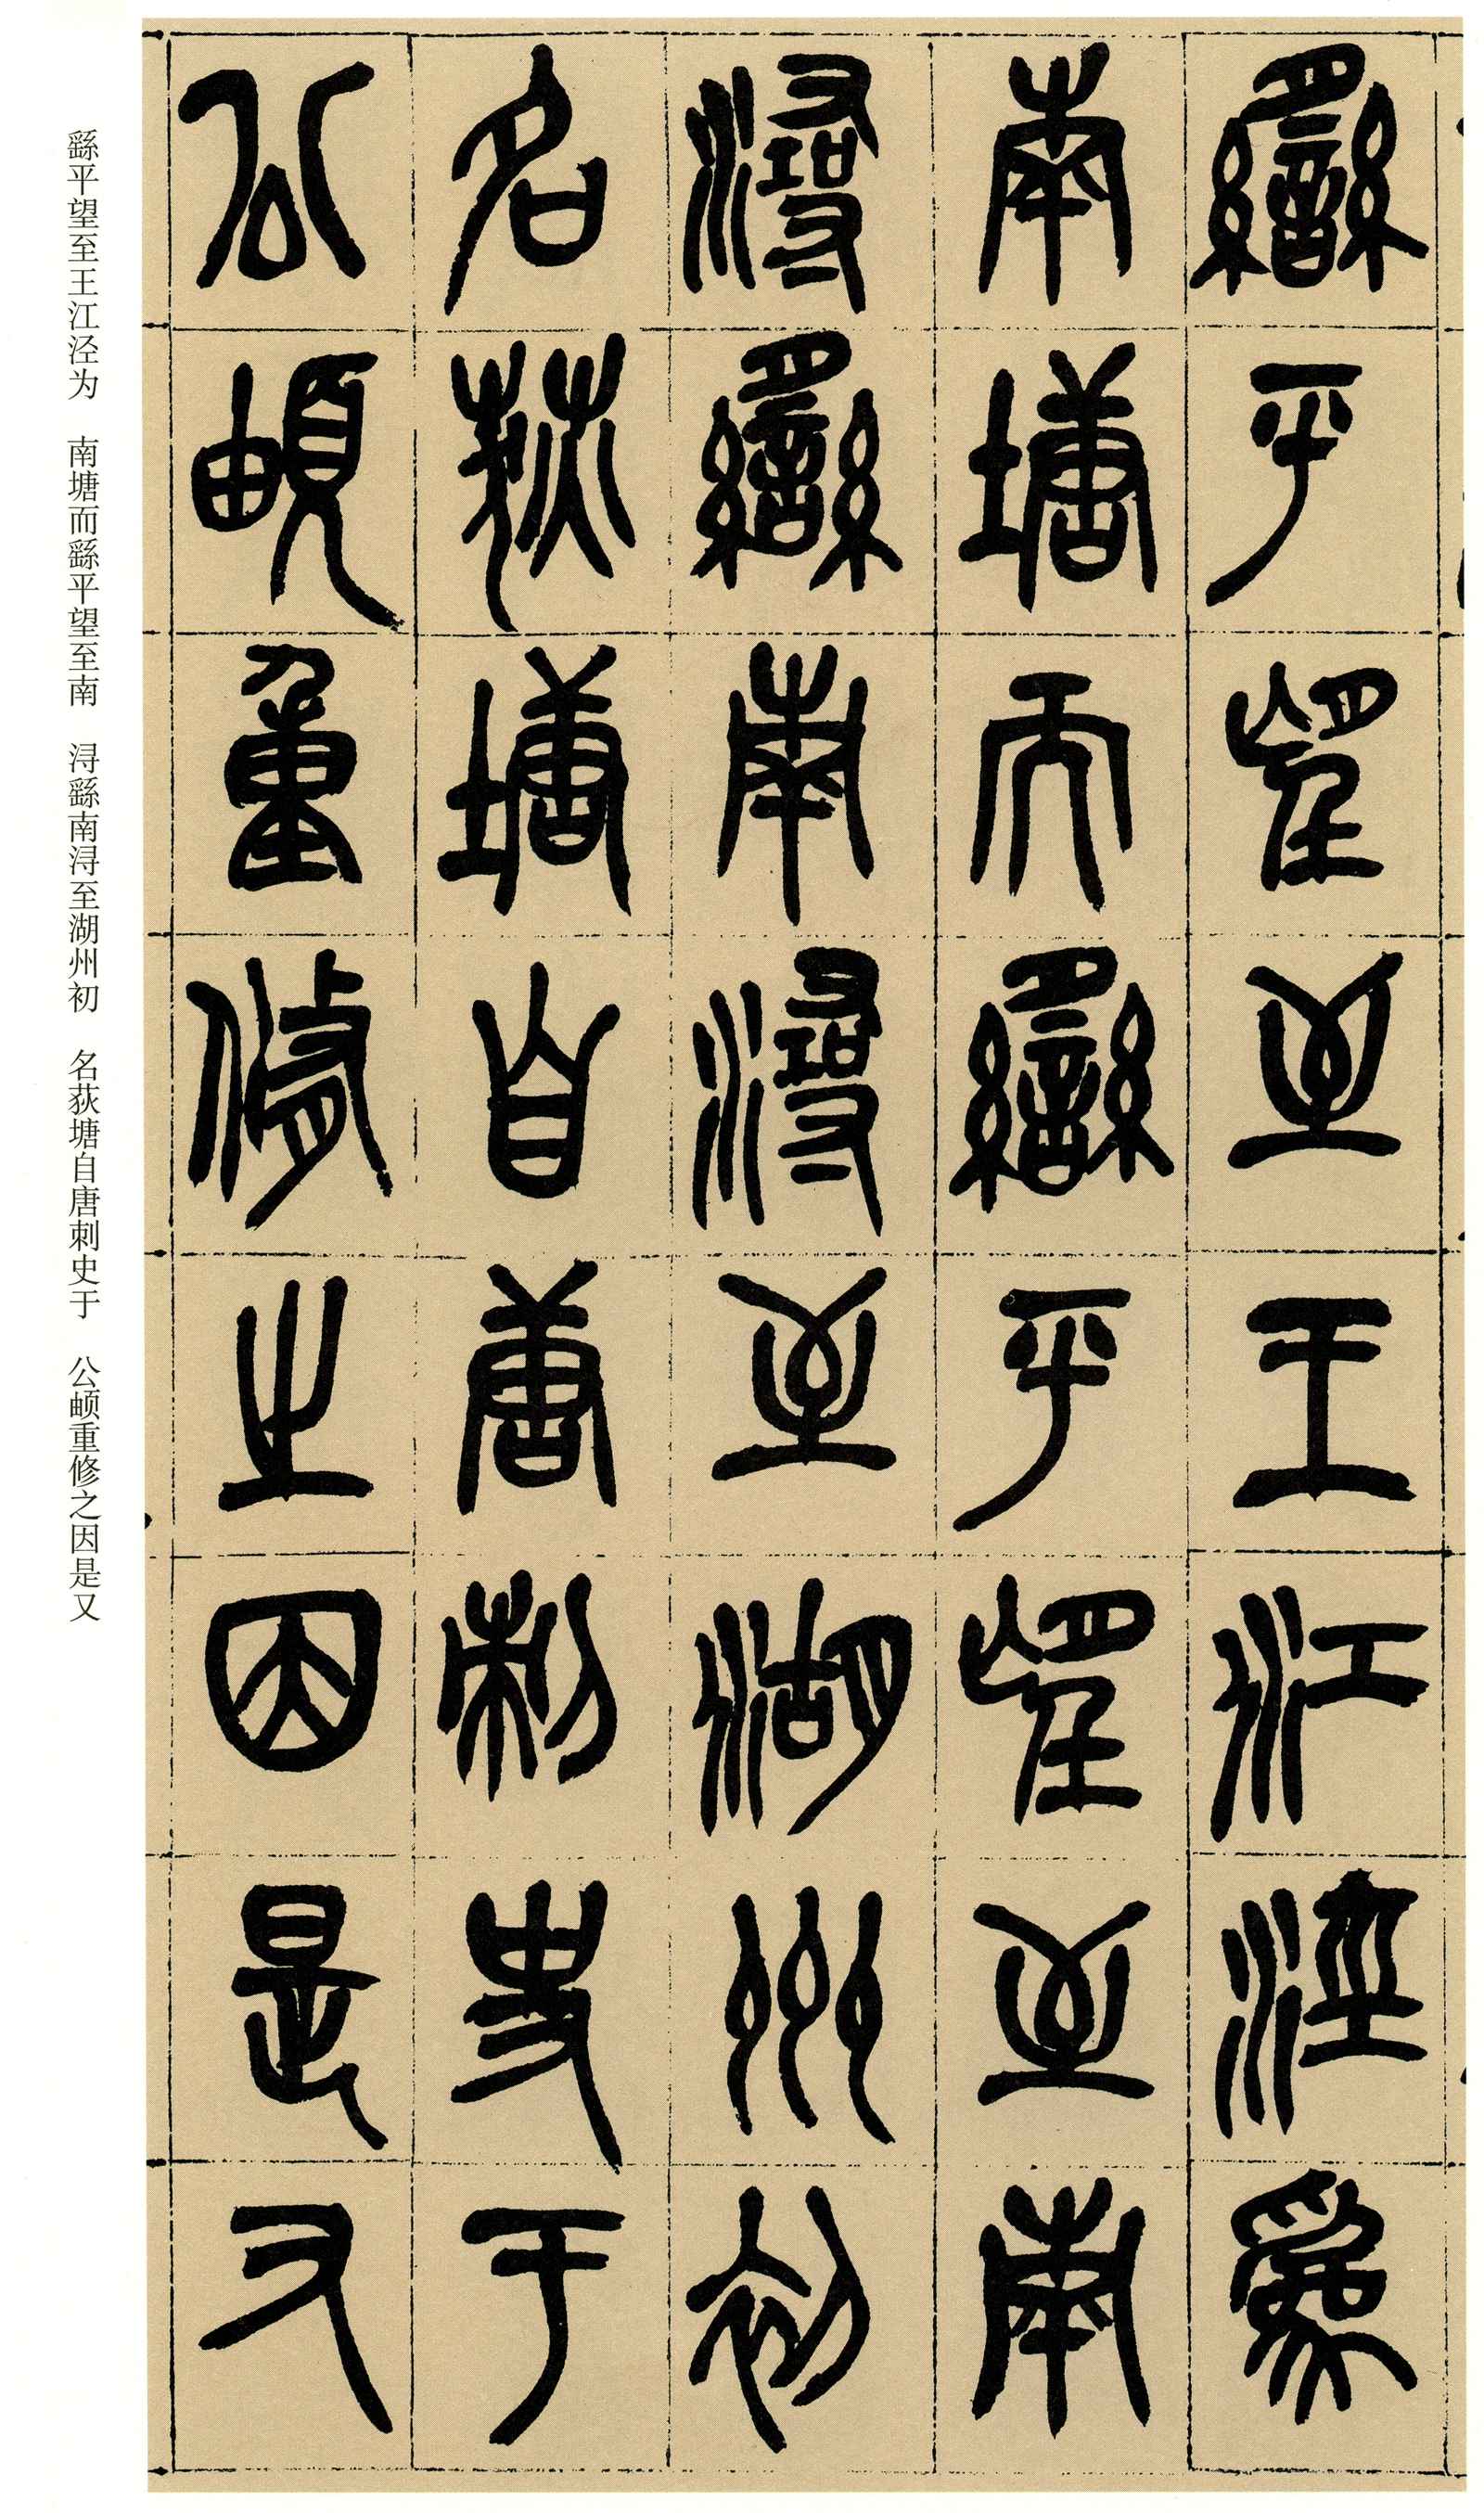 繇平望至王江涇為
南塘而繇平望至南
潯繇南潯至湖州初
名荻塘自唐刺史于
公頔重修之因是又
繇平望至王江泾为 南塘而繇平望至南 浔繇南浔至湖州初 名荻塘自唐刺史于 公頔重修之因是又